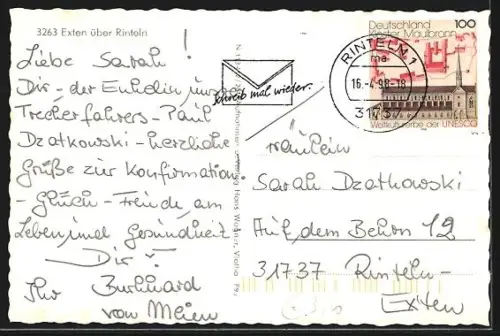 3263 Exten über Rinteln
Liebe Sarah!
Dir - der Enkelin unseres
Treckerfahrers - Paul
Dzatkowski - herzliche
Grüße zur Konfirmation!
- Glück - Freude am
Leben, und Gesundheit
Dir!
Ihr Burkhard
von Meien
schreib mal wieder.
Deutschland 100
Kloster Maulbronn
Weltkulturerbe der UNESCO
RINTELN 1
ma
16.-4.98-18
31737
Fräulein
Sarah Dzatkowski
Auf dem Behrn 12
31737 Rinteln-
Exten